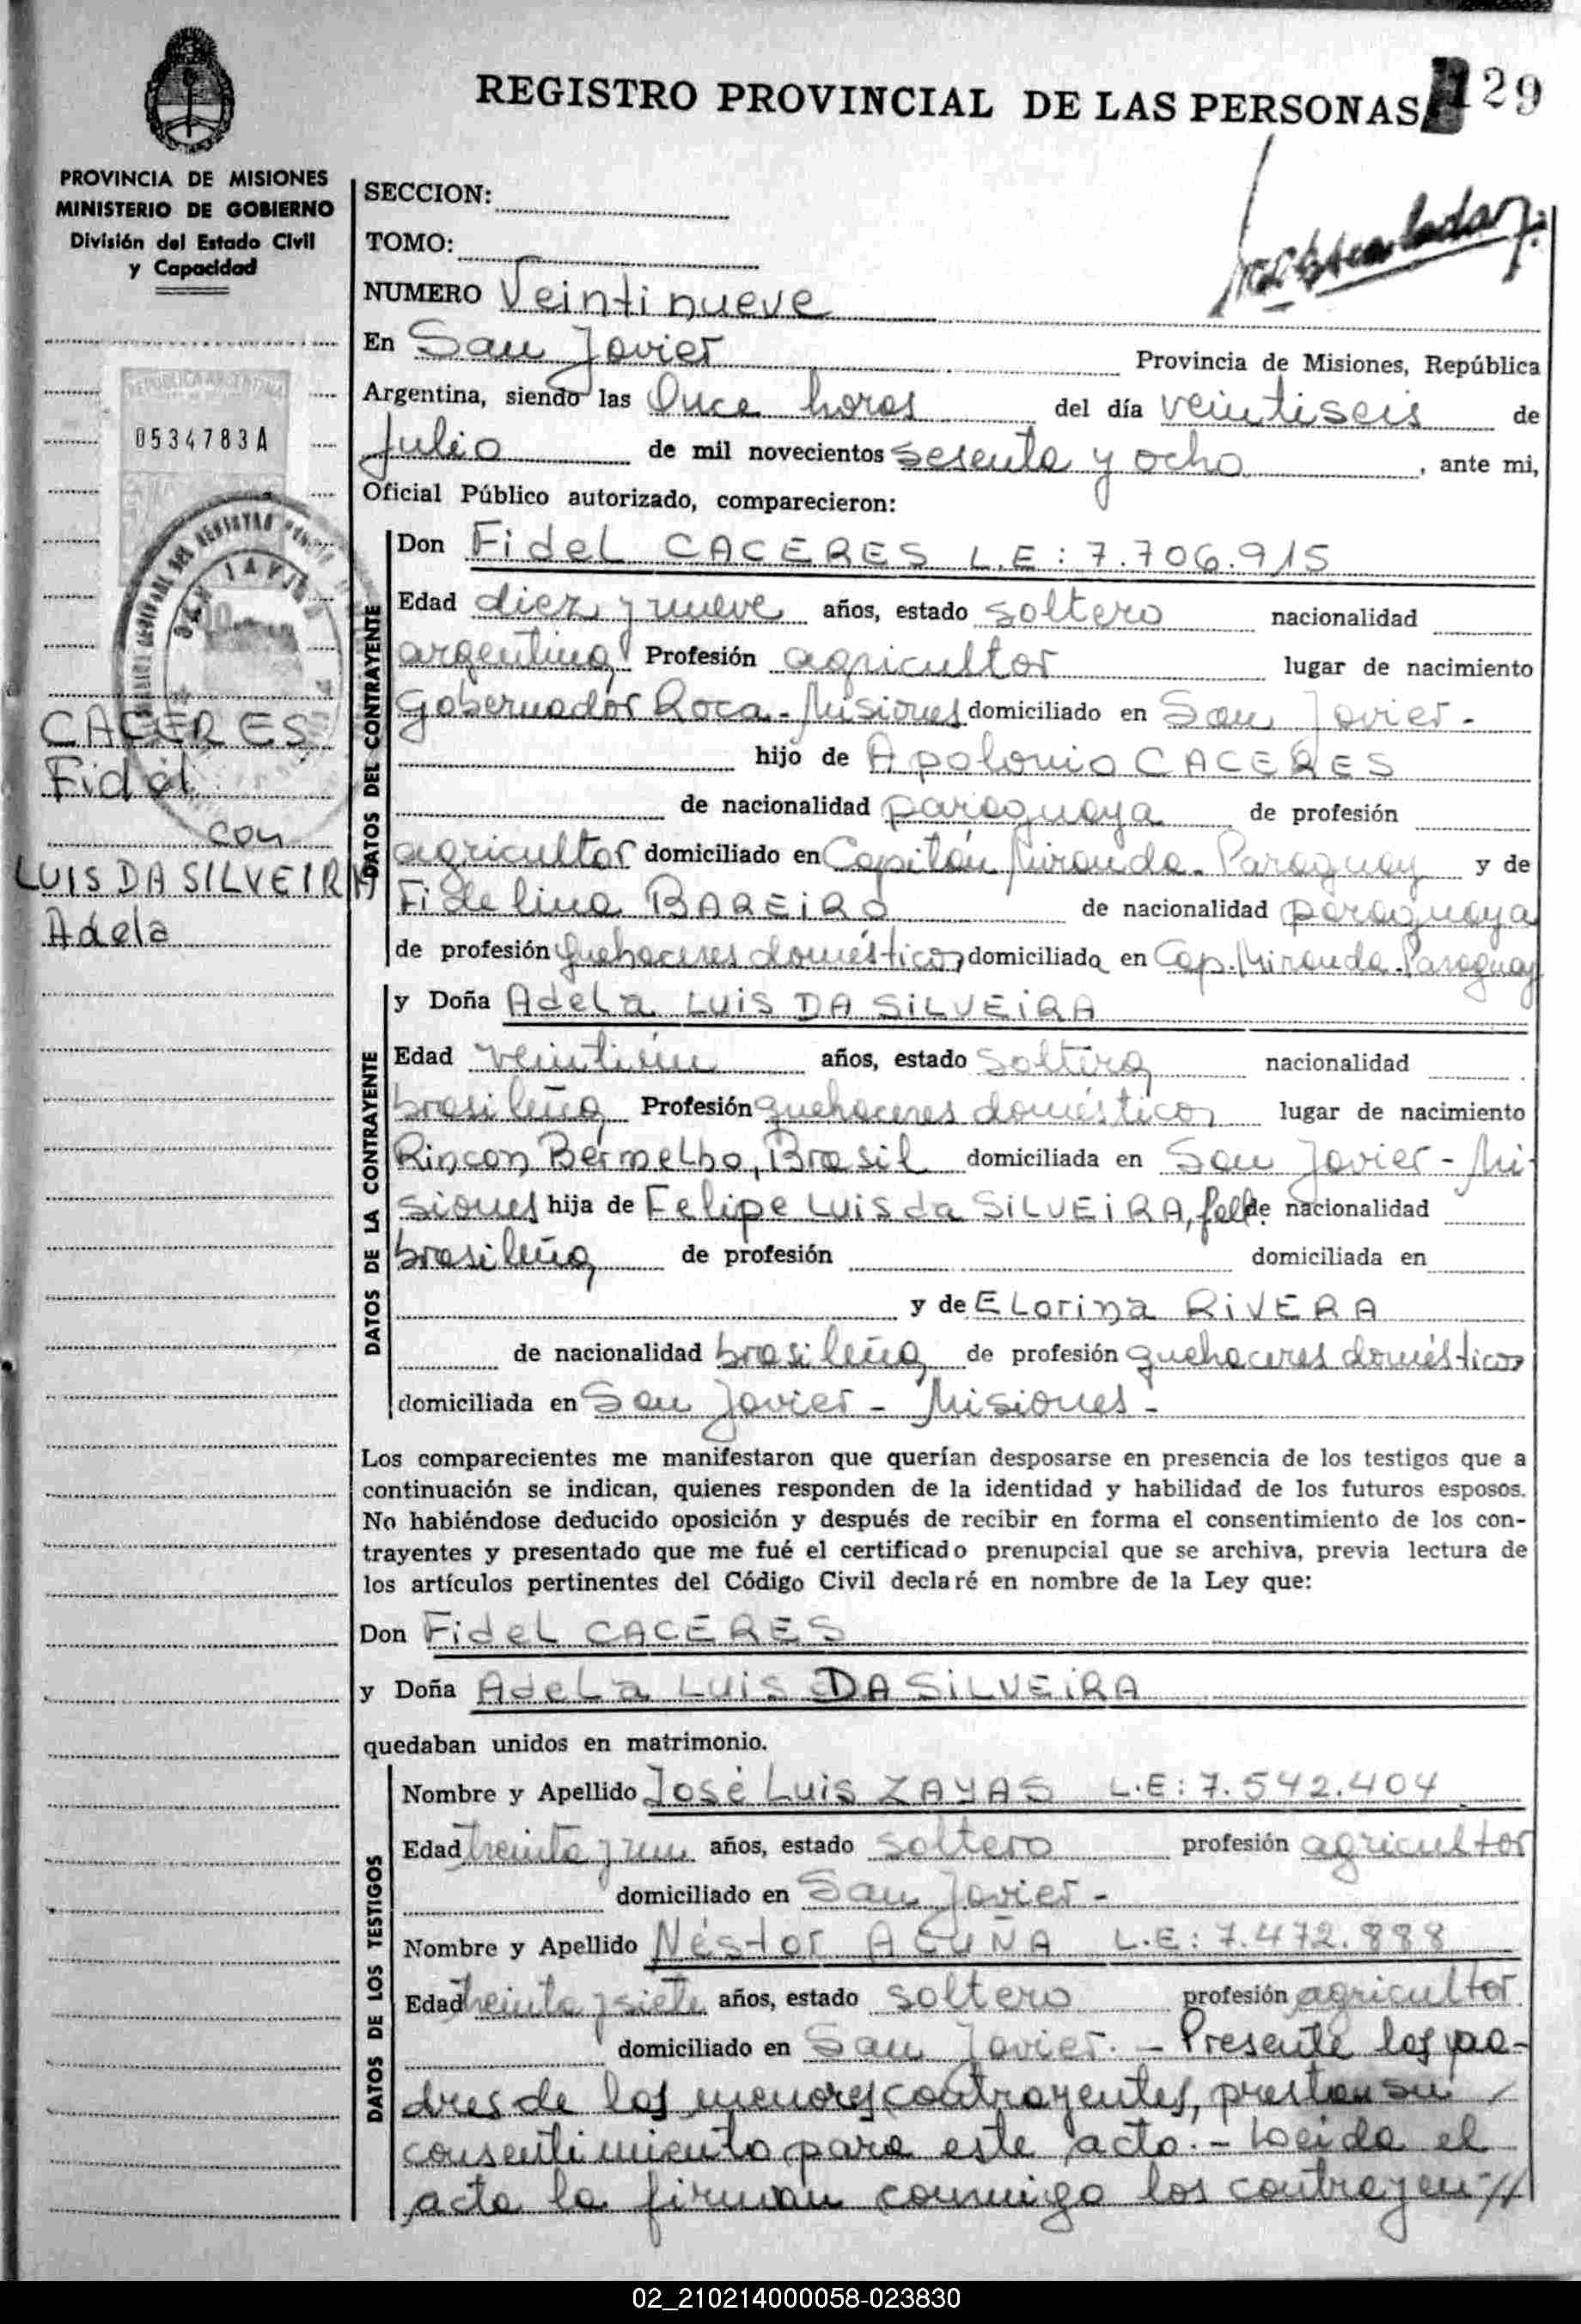 REGISTRO PROVINCIAL DE LAS PERSONAS 129
PROVINCIA DE MISIONES
MINISTERIO DE GOBIERNO
División del Estado Civil
y Capacidad
0534783A
CACERES
Fidel
con
LUIS DA SILVEIRA
Adela
SECCION:
TOMO:
NUMERO Veintinueve
En San Javier Provincia de Misiones, República
Argentina, siendo las Once horas del día veintiseis de
Julio de mil novecientos sesenta y ocho, ante mi,
Oficial Público autorizado, comparecieron:
DATOS DEL CONTRAYENTE
Don Fidel CACERES L.E: 7.706.915
Edad diez y nueve años, estado soltero nacionalidad
argentina Profesión agricultor lugar de nacimiento
Gobernador Roca - Misiones domiciliado en San Javier -
hijo de Apolonio CACERES
de nacionalidad paraguaya de profesión
agricultor domiciliado en Capitán Miranda - Paraguay y de
Fidelina BAREIRO de nacionalidad paraguaya
de profesión quehaceres domésticos domiciliada en Cap. Miranda - Paraguay
DATOS DE LA CONTRAYENTE
y Doña Adela LUIS DA SILVEIRA
Edad veintiún años, estado soltera nacionalidad
brasileña Profesión quehaceres domésticos lugar de nacimiento
Rincon Bermelho, Brasil domiciliada en San Javier - Mi-
siones hija de Felipe Luis da SILVEIRA, fall. de nacionalidad
brasileña de profesión domiciliada en
y de Elorina RIVERA
de nacionalidad brasileña de profesión quehaceres domésticos
domiciliada en San Javier - Misiones -
Los comparecientes me manifestaron que querían desposarse en presencia de los testigos que a
continuación se indican, quienes responden de la identidad y habilidad de los futuros esposos.
No habiéndose deducido oposición y después de recibir en forma el consentimiento de los con-
trayentes y presentado que me fué el certificado prenupcial que se archiva, previa lectura de
los artículos pertinentes del Código Civil declaré en nombre de la Ley que:
Don Fidel CACERES
y Doña Adela LUIS DA SILVEIRA
quedaban unidos en matrimonio.
DATOS DE LOS TESTIGOS
Nombre y Apellido José Luis ZAYAS L.E: 7.542.404
Edad treinta y un años, estado soltero profesión agricultor
domiciliado en San Javier -
Nombre y Apellido Néstor ACUÑA L.E: 7.472.888
Edad treinta y siete años, estado soltero profesión agricultor
domiciliado en San Javier. - Presente los pa-
dres de los menores contrayentes, prestan su
consentimiento para este acto. - Leida el
acta la firman conmigo los contrayen-//
02_210214000058-023830